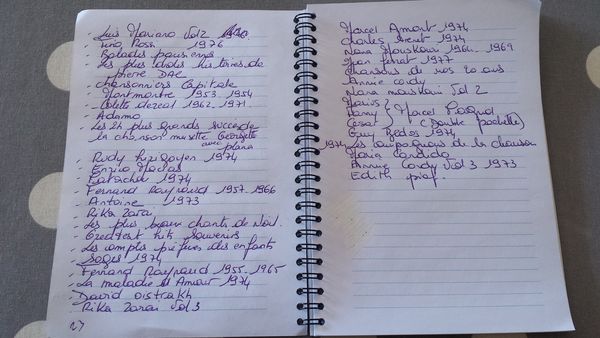 . Luis Mariano Vol 2
. Tino Rossi 1976
. Balades parisiennes
. Les plus belles histoires de
pierre DAC
. chansonniers Capitale
Montmartre 1953 - 1954
. Colette dereal 1962 - 1971
. Adamo
. Les 24 plus grands succès de
la chanson musette Georgette
avec plana
. Rudy hirigoyen 1974
. Enrico Macias
. Patachou 1974
. Fernand Raynaud 1957 - 1966
. Antoine 1973
. Rika Zaraï
. Les plus beaux chants de Noël.
. Greatest hits souvenirs
. Les comptes préférés des enfants
. 1974
. Fernand Raynaud 1955 - 1965
. La maladie d'Amour 1974
. David oistrakh
. Rika Zaraï Vol 3
27
Marcel Amont 1974
Charles Trenet 1974
Nana Mouskouri 1961 - 1969
Jean ferrat 1977
Chansons de nos 20 ans
Annie cordy
Nana mouskouri Vol 2
Marius }
Fanny } Marcel Pagnol
César } (Double pochette)
Guy Bedos 1974
1974 Les compagnons de la chanson
Maria Candido
Annie Cordy Vol 3 1973
Edith piaf.